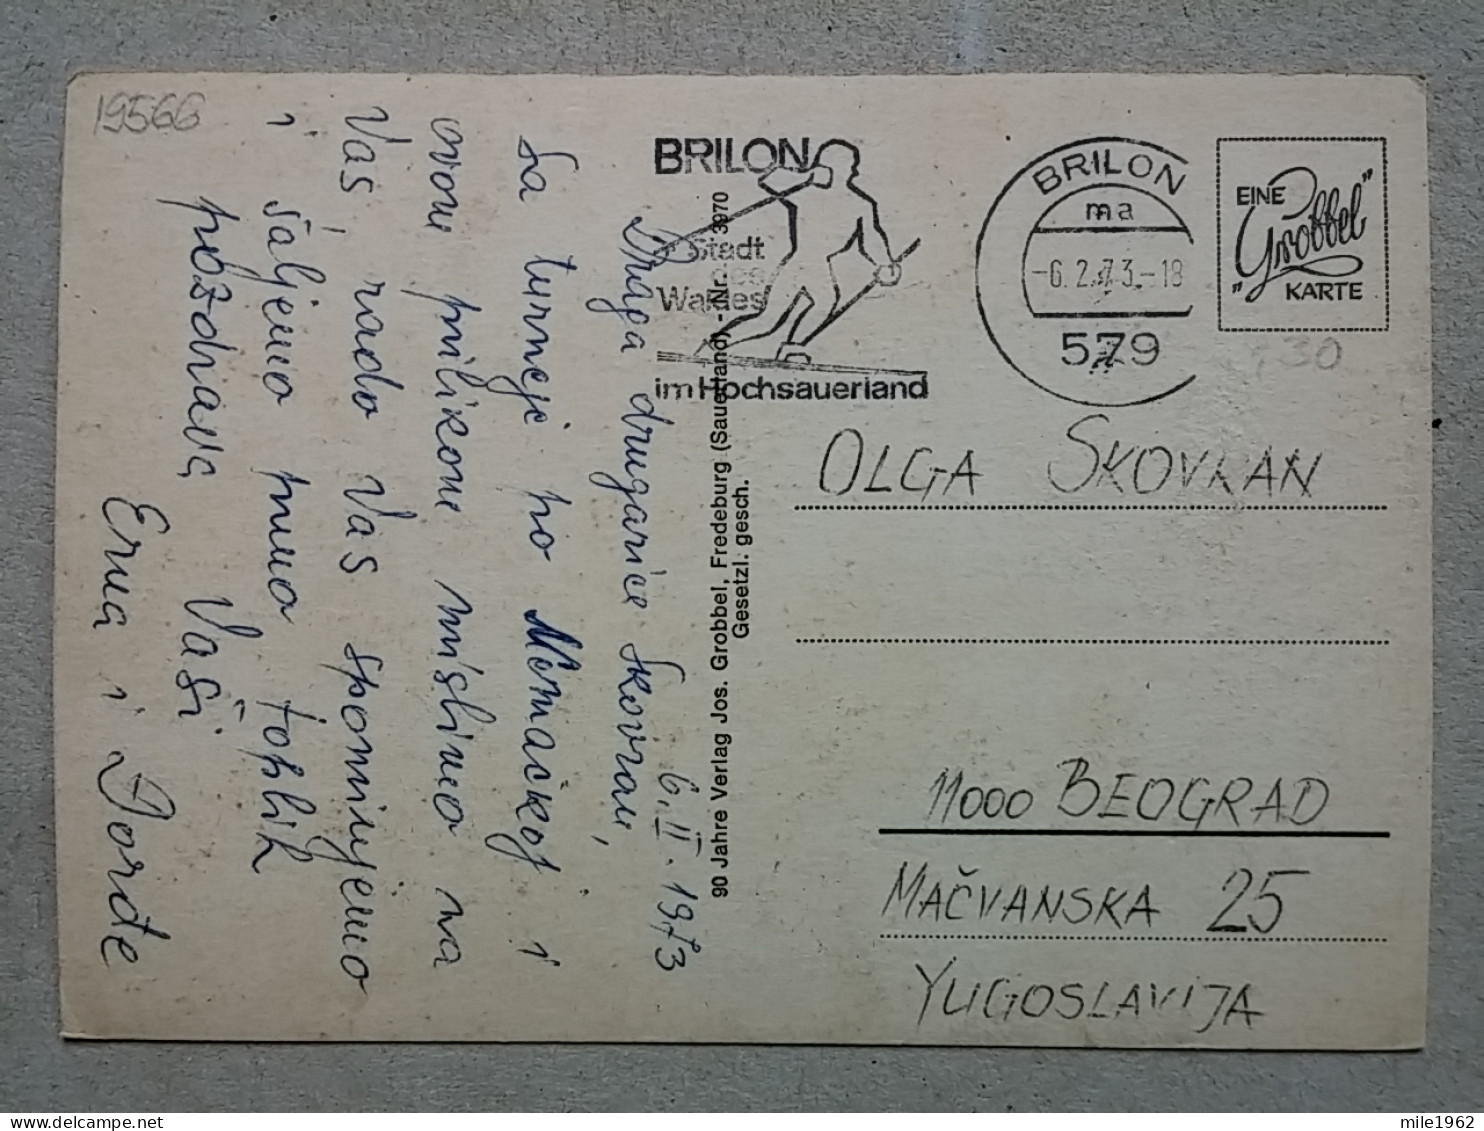 19566
6. II. 1973
Draga drugarice Skovran,
Sa turneje po Nemačkoj i
ovom prilikom mislimo na
Vas, rado Vas spominjemo
i šaljemo puno puno toplih
pozdrava, Vaši
Erna i Đorđe
BRILON
Stadt
des
Waldes
im Hochsauerland
BRILON
ma
-6.2.73.-18
579
EINE
„Grobbel"
KARTE
30
90 Jahre Verlag Jos. Grobbel, Fredeburg (Sauerland) - Nr. 3970
Gesetzl. gesch.
OLGA SKOVRAN
11000 BEOGRAD
MAČVANSKA 25
YUGOSLAVIJA
mile1962